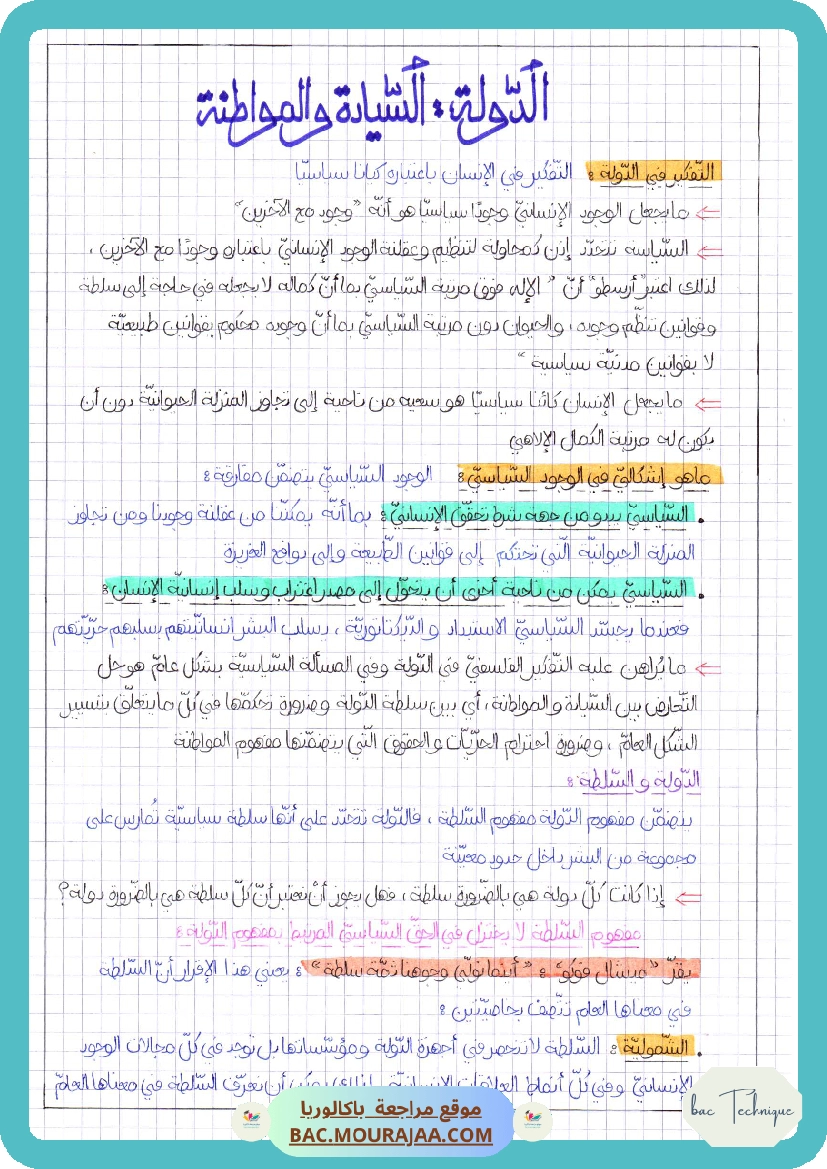 الدّولة: السّيادة والمواطنة
التّفكير في الدّولة : التّفكير في الإنسان باعتباره كيانا سياسيّا
⇐ ما يجعل الوجود الإنسانيّ وجودًا سياسيّا هو أنّه "وجود مع الآخرين"
⇐ السّياسة تتحدّد إذن كمحاولة لتنظيم وعقلنة الوجود الإنسانيّ باعتباره وجودًا مع الآخرين ،
لذلك اعتبر أرسطو أنّ " الإله فوق مرتبة السّياسيّ بما أنّ كماله لا يجعله في حاجة إلى سلطة
وقوانين تنظّم وجوده ، والحيوان دون مرتبة السّياسيّ بما أنّ وجوده محكوم بقوانين طبيعيّة
لا بقوانين مدنيّة سياسية "
⇐ ما يجعل الإنسان كائنا سياسيّا هو سعيه من ناحية إلى تجاوز المنزلة الحيوانيّة دون أن
يكون له مرتبة الكمال الإلاهي
ماهو إشكاليّ في الوجود السّياسيّ : الوجود السّياسيّ يتضمّن مفارقة :
• السّياسيّ يبدو من جهة شرط تحقّق الإنسانيّ : بما أنّه يمكّننا من عقلنة وجودنا ومن تجاوز
المنزلة الحيوانيّة الّتي تحتكم إلى قوانين الطّبيعة وإلى دوافع الغريزة
• السّياسيّ يمكن من ناحية أخرى أن يتحوّل إلى مصدر اغتراب وسلب إنسانيّة الإنسان :
فعندما يجسّد السّياسيّ الاستبداد والدّيكتاتوريّة ، يسلب البشر إنسانيّتهم بسلبهم حرّيّتهم
⇐ ما يُراهن عليه التّفكير الفلسفيّ في الدّولة وفي المسألة السّياسيّة بشكل عامّ هو حل
التّعارض بين السّيادة والمواطنة ، أي بين سلطة الدّولة وضرورة تحكمّها في كلّ ما يتعلّق بتسيير
الشّكل العامّ ، وضرورة احترام الحرّيّات والحقوق الّتي يتضمّنها مفهوم المواطنة
الدّولة والسّلطة :
يتضمّن مفهوم الدّولة مفهوم السّلطة ، فالدّولة تتحدّد على أنّها سلطة سياسيّة تُمارس على
مجموعة من البشر داخل حدود معيّنة
⇐ إذا كانت كلّ دولة هي بالضّرورة سلطة ، فهل يجوز أنْ نعتبر أنّ كلّ سلطة هي بالضّرورة دولة؟
مفهوم السّلطة لا يختزل في الحقّ السّياسيّ المرتبط بمفهوم الدّولة :
يقرّ "ميشال فوكو" : "أينما نولّي وجوهنا ثمّة سلطة" : يعني هذا الإقرار أنّ السّلطة
في معناها العام تتّصف بخاصيّتين :
• الشّموليّة : السّلطة لا تنحصر في أجهزة الدّولة ومؤسّساتها بل توجد في كلّ مجالات الوجود
الإنسانيّ وفي كُلّ أنماط العلاقات الإنسانيّة ، لذلك يمكن أن نعرّف السّلطة في معناها العامّ
موقع مراجعة باكالوريا
BAC.MOURAJAA.COM
bac Technique